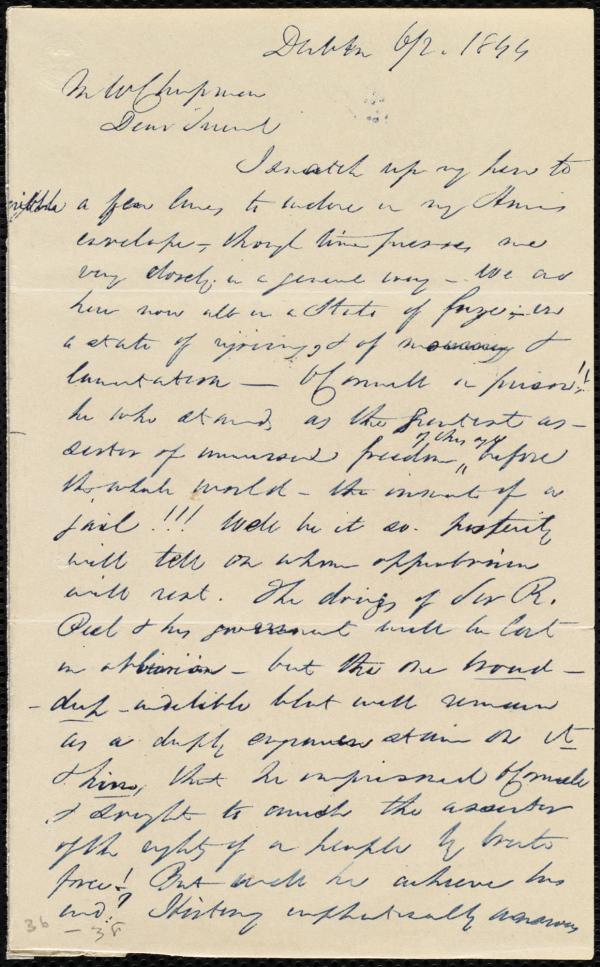 Dublin 6/2. 1844
M W Chapman
Dear Friend
I snatch up my pen to
a few lines to enclose in my
envelope, though time presses me
very closely in a general way - We are
here now all in a State of
a state of rejoicing, & of &
lamentation — O'Connell in prison!!
he who stands as the greatest as-
sertor of universal freedom of this age before
the whole world - the inmate of a
jail!!! Well be it so. posterity
will tell on whom opprobrium
will rest. The doings of Sir R.
Peel & his government will be lost
in oblivion - but the one broad -
deep - indelible blot will remain
as a deeply engraven stain on it
& him, that he imprisoned O'Connell
& sought to crush the assertor
of the rights of a people by brute
force! But will he achieve his
end? History emphatically answers
36
- 38